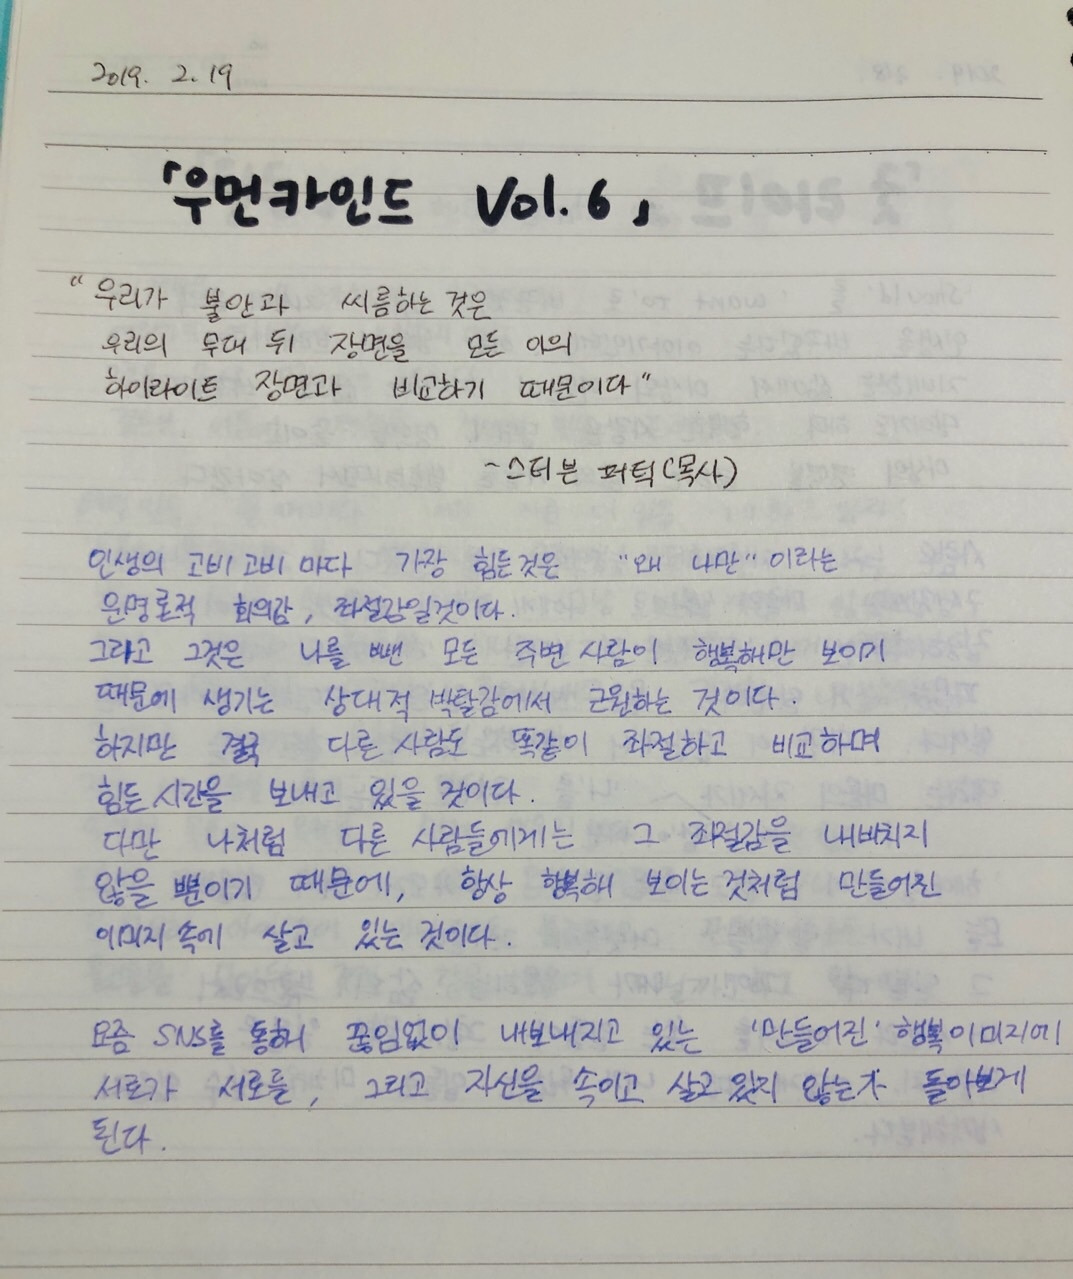 2019. 2. 19
「우먼카인드 Vol. 6」
"우리가 불안과 씨름하는 것은
우리의 무대 뒤 장면을 모든 이의
하이라이트 장면과 비교하기 때문이다"
~스티븐 퍼틱(목사)
인생의 고비고비 마다 가장 힘든것은 "왜 나만"이라는
운명론적 회의감, 좌절감일것이다.
그리고 그것은 나를 뺀 모든 주변 사람이 행복해만 보이기
때문에 생기는 상대적 박탈감에서 근원하는 것이다.
하지만 결국 다른 사람도 똑같이 좌절하고 비교하며
힘든 시간을 보내고 있을 것이다.
다만 나처럼 다른 사람들에게는 그 좌절감을 내비치지
않을 뿐이기 때문에, 항상 행복해 보이는 것처럼 만들어진
이미지 속에 살고 있는 것이다.
요즘 SNS를 통해 끊임없이 내보내지고 있는 '만들어진' 행복이미지에
서로가 서로를, 그리고 자신을 속이고 살고 있지 않는가 돌아보게
된다.